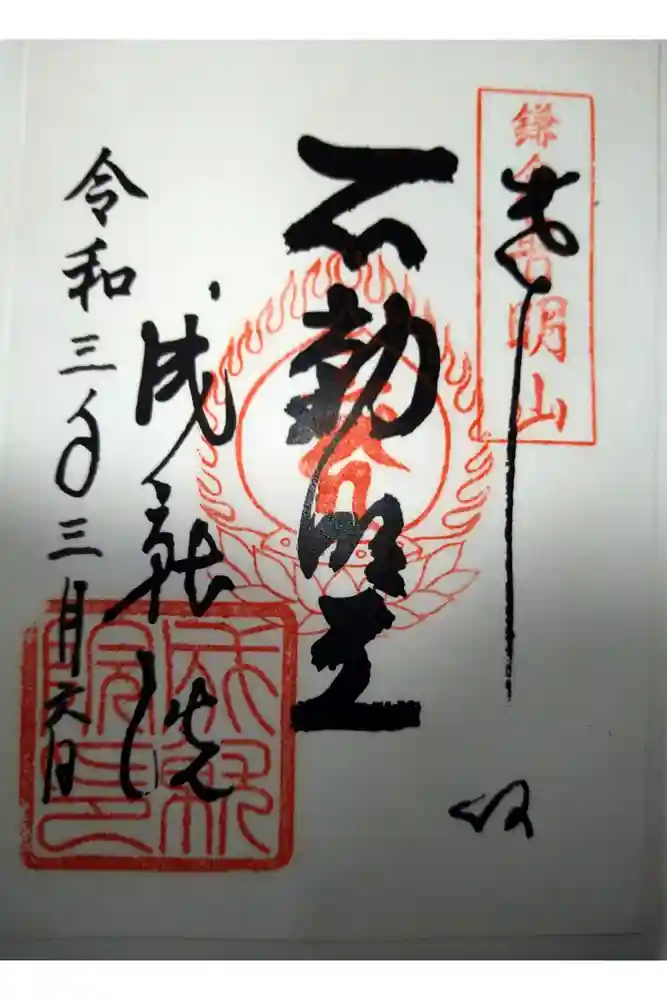 鎌倉普明山
奉拝
不動明王
成就院
令和三年三月六日
成就
院印